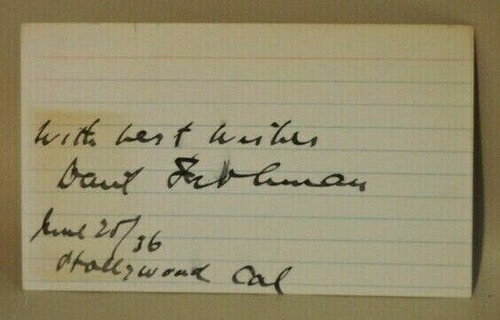 With best wishes
Daniel Frohman
June 25/36
Hollywood Cal